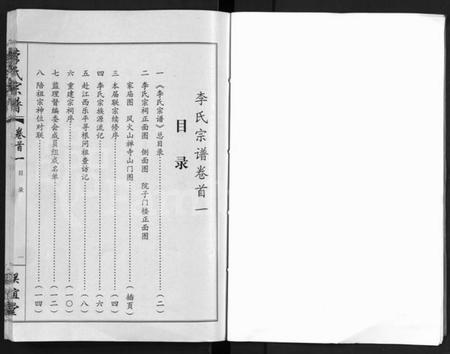 李氏宗谱卷首一
目录
一 《李氏宗谱》总目录……(二)
二 李氏宗祠正面图 侧面图 院子门楼正面图
家庙图 风火山禅寺山门图……(插页)
三 本届联宗续修序……(四)
四 李氏宗族源流记……(六)
五 赴江西乐平寻根问祖查访记……(八)
六 重建宗祠序……(一〇)
七 监理督编委会成员组成名单……(一二)
八 陪祖宗神位对联……(一四)
李氏宗谱
卷首一
目录
一